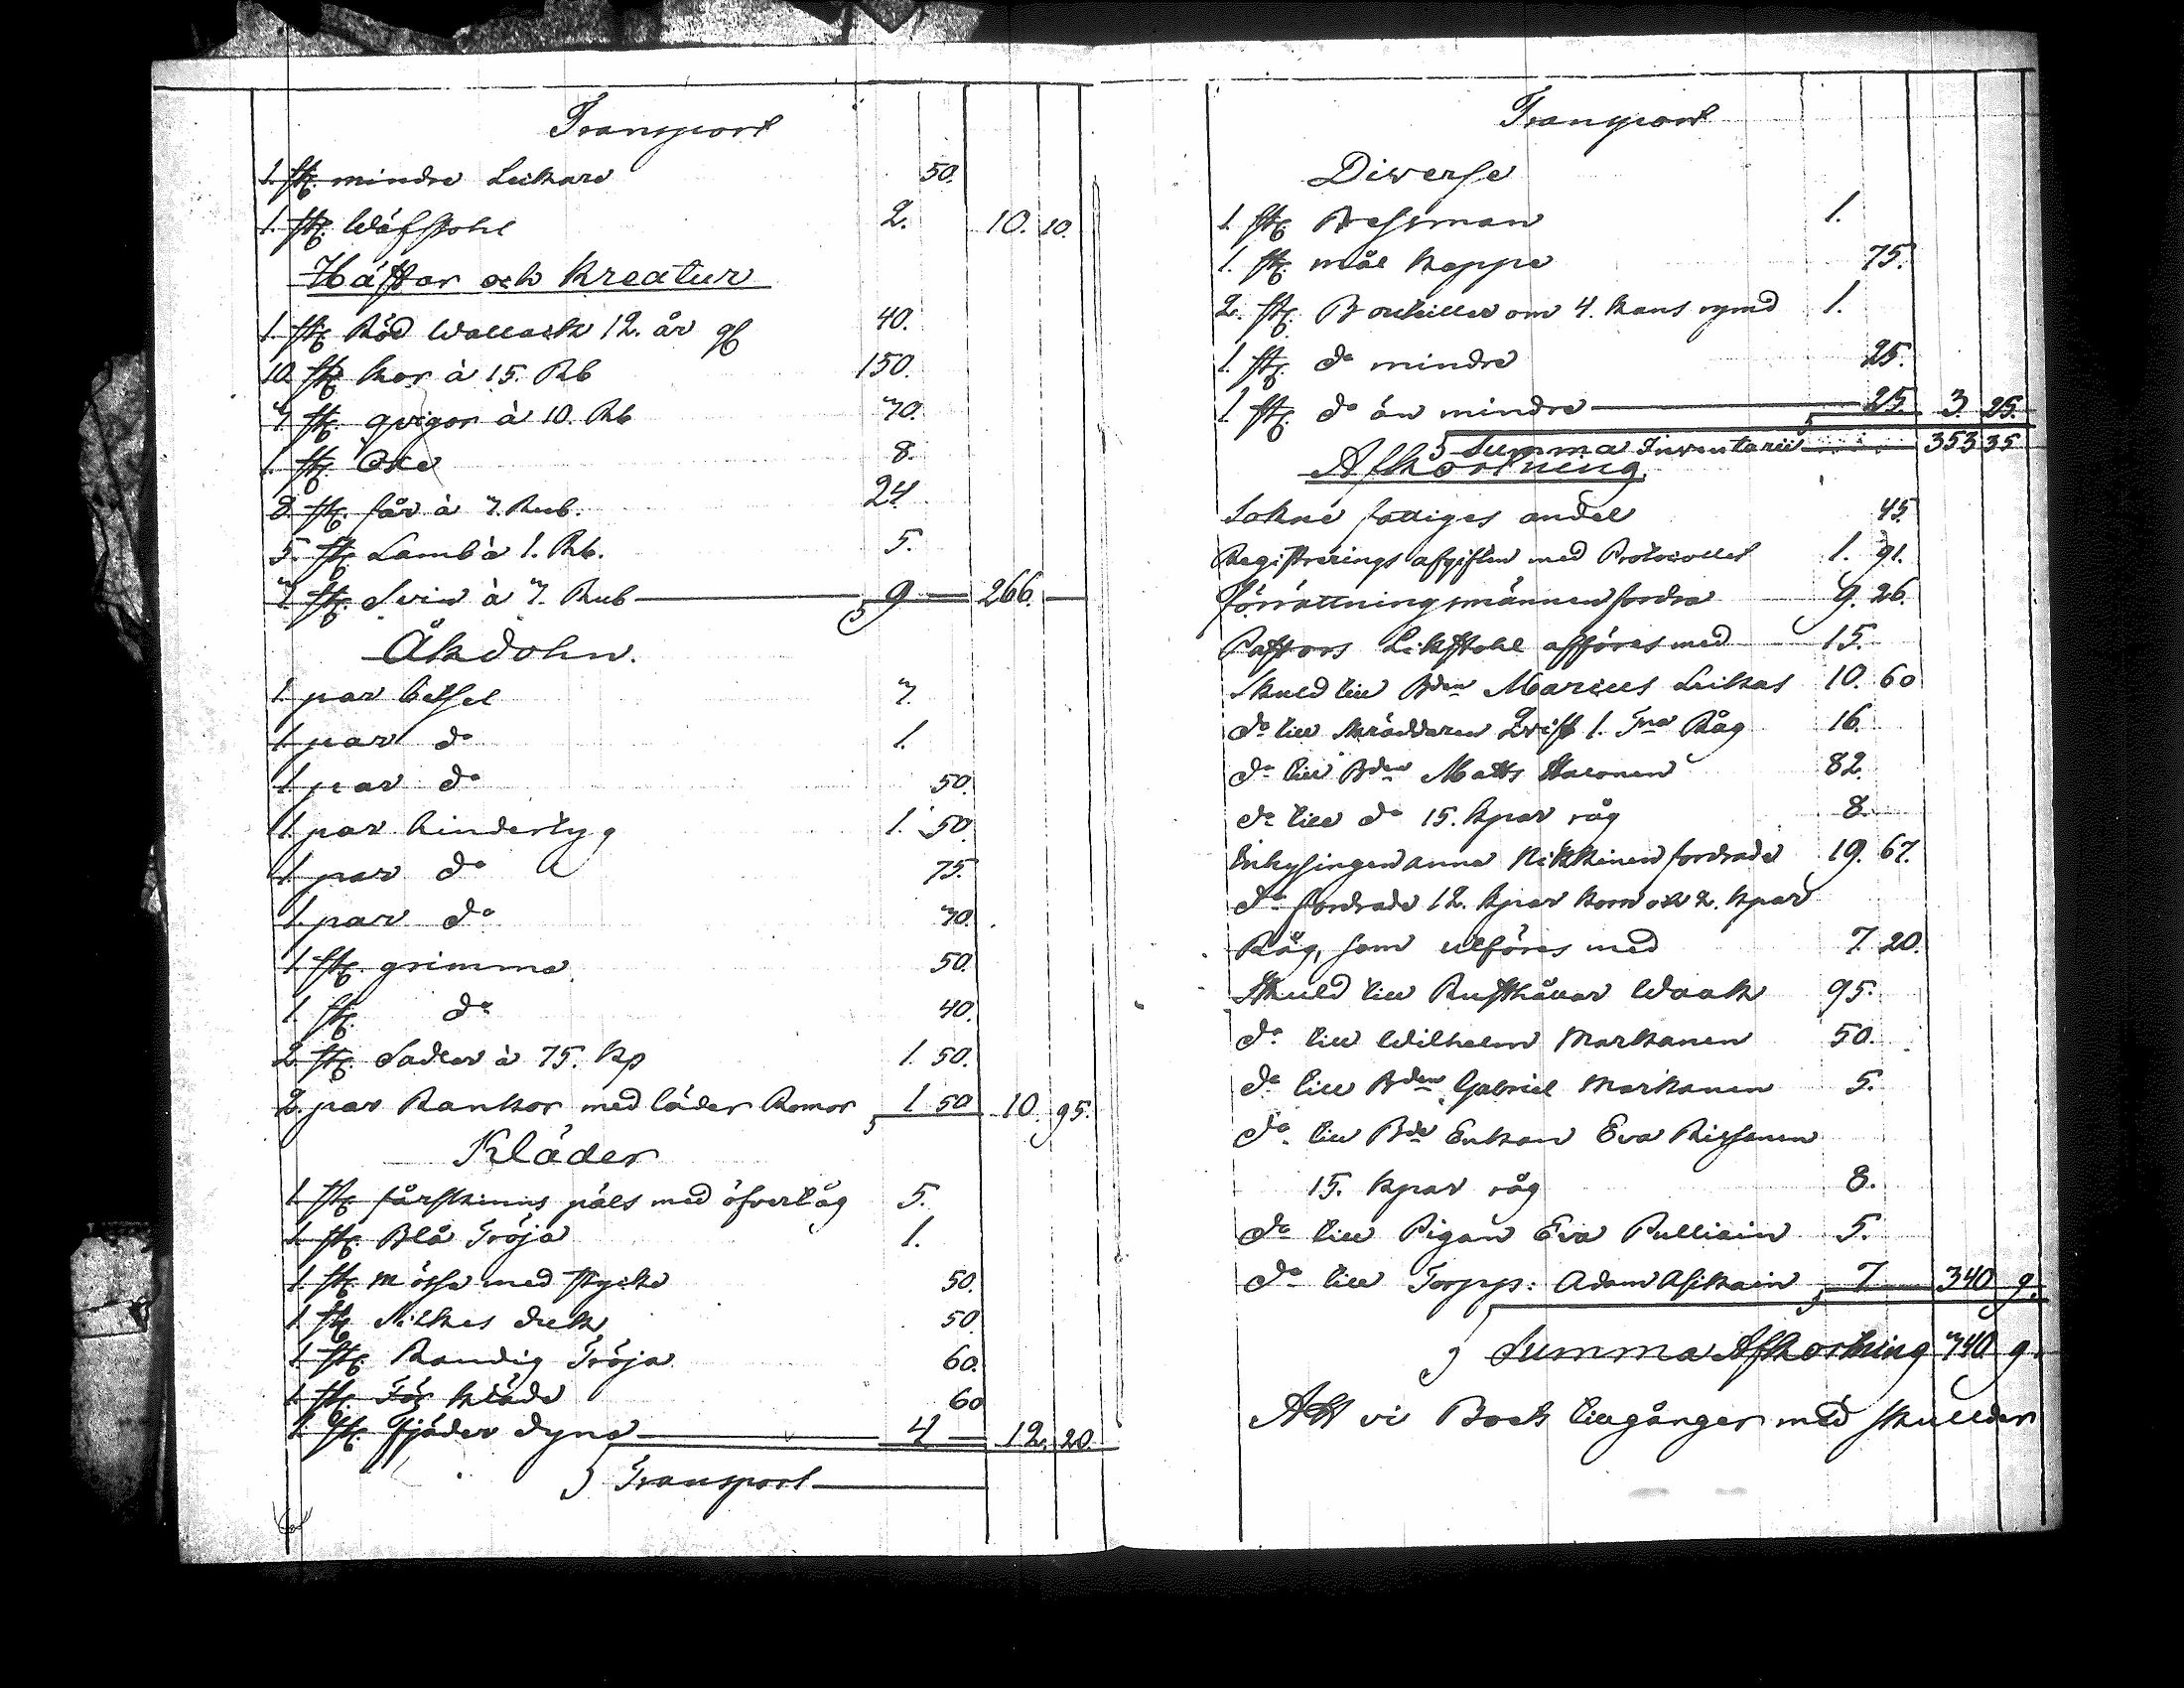 Transport
1. stk. mindre Leikare 50.
1. stk. Wäfstohl 2. 10. 10.
Hästar och Kreatur
1. stk. Röd Wallack 12. år gl 40.
10 stk. kor à 15. Rb 150.
7 stk. qvigor à 10. Rb 70.
1. stk. Oxe 8.
8 stk. får à 3. Rub. 24.
5. stk. Lamb à 1. Rb. 5.
3 stk. Svin à 3. Rub 9 266.
Åkdohn.
1 par betsel 3.
1. par do 1.
1 par do 50.
1. par hindertyg 1. 50.
1. par do 75.
1. par do 30.
1 stk. grimma 50.
1. stk. do 40.
2 stk. Sadlar à 75. Kp 1. 50.
2. par Rankor med läder Remor 1 50 10. 95.
Kläder
1. stk. fårskinns päls med öfvertåg 5.
1. stk. Blå Tröja 1.
1 stk. mössa med skycke 50.
1 stk. Silkes duk 50.
1. stk. Randig Tröja 60.
1. stk. För kläde 60
1. stk. fjäder dyna 4 12. 20.
Transport
Transport
Diverse
1. stk. Bessman 1.
1. stk. mål kappe 75.
2. stk. Bouteiller om 4. kans rymd 1.
1. stk. do mindre 25.
1 stk. do än mindre 25. 3. 25.
Summa Inventarii 353 35
Afkortning
Sokne fattiges andel 45.
Registrerings afgiften med Protocollet 1. 91.
förrättningsmännen fordra 9. 26.
Pastors Likstohl affóres med 15.
Skuld till Bden Marcus Leikas 10. 60
do till skräddaren Qvist 1. Tna Råg 16.
do till Bden Matts 82
do till do 15. kpar råg 8.
Inhysingen Anna Nikkinen fordrade 19. 67.
do fordrade 12. kpar korn och 2. kpar
Råg, som utföres med 7. 20.
Skuld till Rusthållar Waak 95.
do till Wilhelm Markanen 50.
do till Bden Gabriel Markanen 5.
do till Bde Enkan Eva Rissanen
15. kpar råg 8.
do till Pigan Eva Pulliain 5.
do till Torpp: Adam Asikain 7. 340 9.
Summa Afkortning 340 9.
Att vi Boets tillgångar med skullder